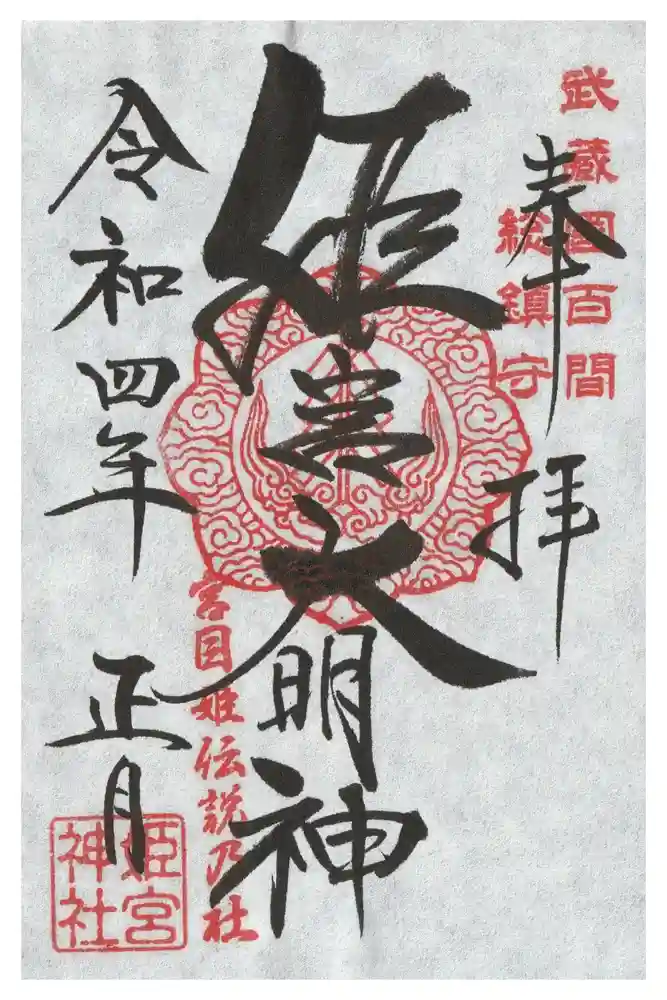 武蔵国百間
総鎮守
奉拝
姫宮大明神
宮目姫伝説乃社
令和四年 正月
姫宮神社